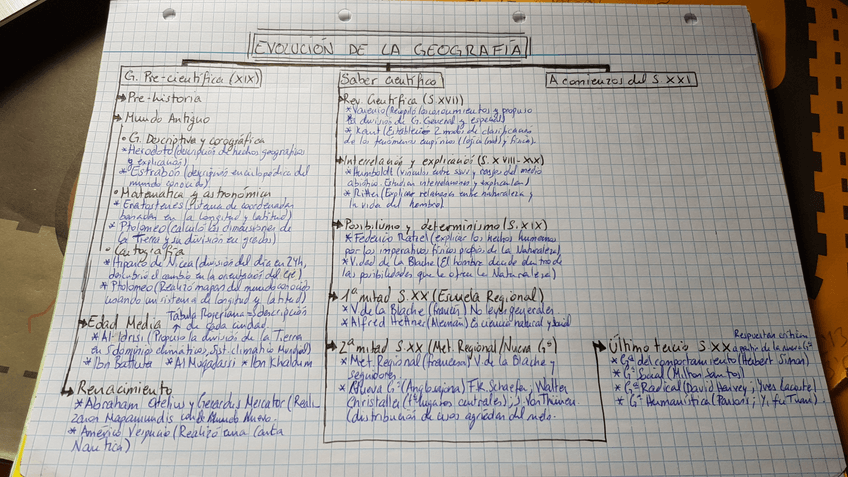 EVOLUCIÓN DE LA GEOGRAFÍA
G. Pre-científica (XIX)
Pre-historia
Mundo Antiguo
• G. Descriptiva y corográfica
* Heródoto (descripción de hechos geográficos
y explicarlos)
* Estrabón (descripción enciclopédica del
mundo conocido)
• Matemática y astronómica
* Eratóstenes (sistema de coordenadas
basadas en la longitud y latitud)
* Ptolomeo (calculó las dimensiones de
la Tierra y su división en grados)
• Cartografía
* Hiparco de Nicea (división del día en 24h,
descubrió el cambio en la orientación del eje)
* Ptolomeo (Realizó mapas del mundo conocido
usando un sistema de longitud y latitud)
Tabula Rogeriana => descripción
de cada ciudad
Edad Media
* Al-Idrisi (Propuso la división de la Tierra
en 5 dominios climáticos, sist. climático Mundial)
* Ibn Battuta * Al Muqadassi * Ibn Khaldum
Renacimiento
* Abraham Ortelius y Gerardus Mercator (Reali
zaron Mapamundis con el Mundo Nuevo
* Américo Vespucio (Realizó una Carta
Náutica)
Saber Científico
Rev. Científica (S. XVII)
* Varenio (Recopiló los conocimientos y propuso
la división de G. General y especial)
* Kant (Estableció 2 modos de clasificación
de los fenómenos empíricos (lógica y física).
Interrelación y explicación (S. XVIII-XIX)
* Humboldt (vínculos entre seres y rasgos del medio
abiótico. Estudian interrelaciones y explicarlas)
* Ritter (Explicar relaciones entre naturaleza y
la vida del hombre).
Posibilismo y determinismo (S. XIX)
* Federico Ratzel (explicar los hechos humanos
por los imperativos físicos propios de la Naturaleza)
* Vidal de la Blache (El hombre decide dentro de
las posibilidades que le ofrece la Naturaleza)
1ª mitad S. XX (Escuela Regional)
* V de la Blache (francés) No leyes generales
* Alfred Hettner (Alemán) Es ciencia natural y social
2ª mitad S. XX (Met. Regional/Nueva Gª)
* Met. Regional (francesa) V de la Blache y
seguidores.
* Nueva Gª (Anglosajona) F.K. Schaefer; Walter
Christaller (tª lugares centrales); J. Von Thünen
(distribución de usos agrarios del suelo.
A comienzos del S XXI
Respuestas críticas
a partir de la nueva Gª
Último tercio S XX
* Gª del comportamiento (Herbert Simon)
* Gª Social (Milton Santos)
* Gª Radical (David Harvey; Yves Lacoste)
* Gª Humanística (Parsons; Yi, fu Tuan)